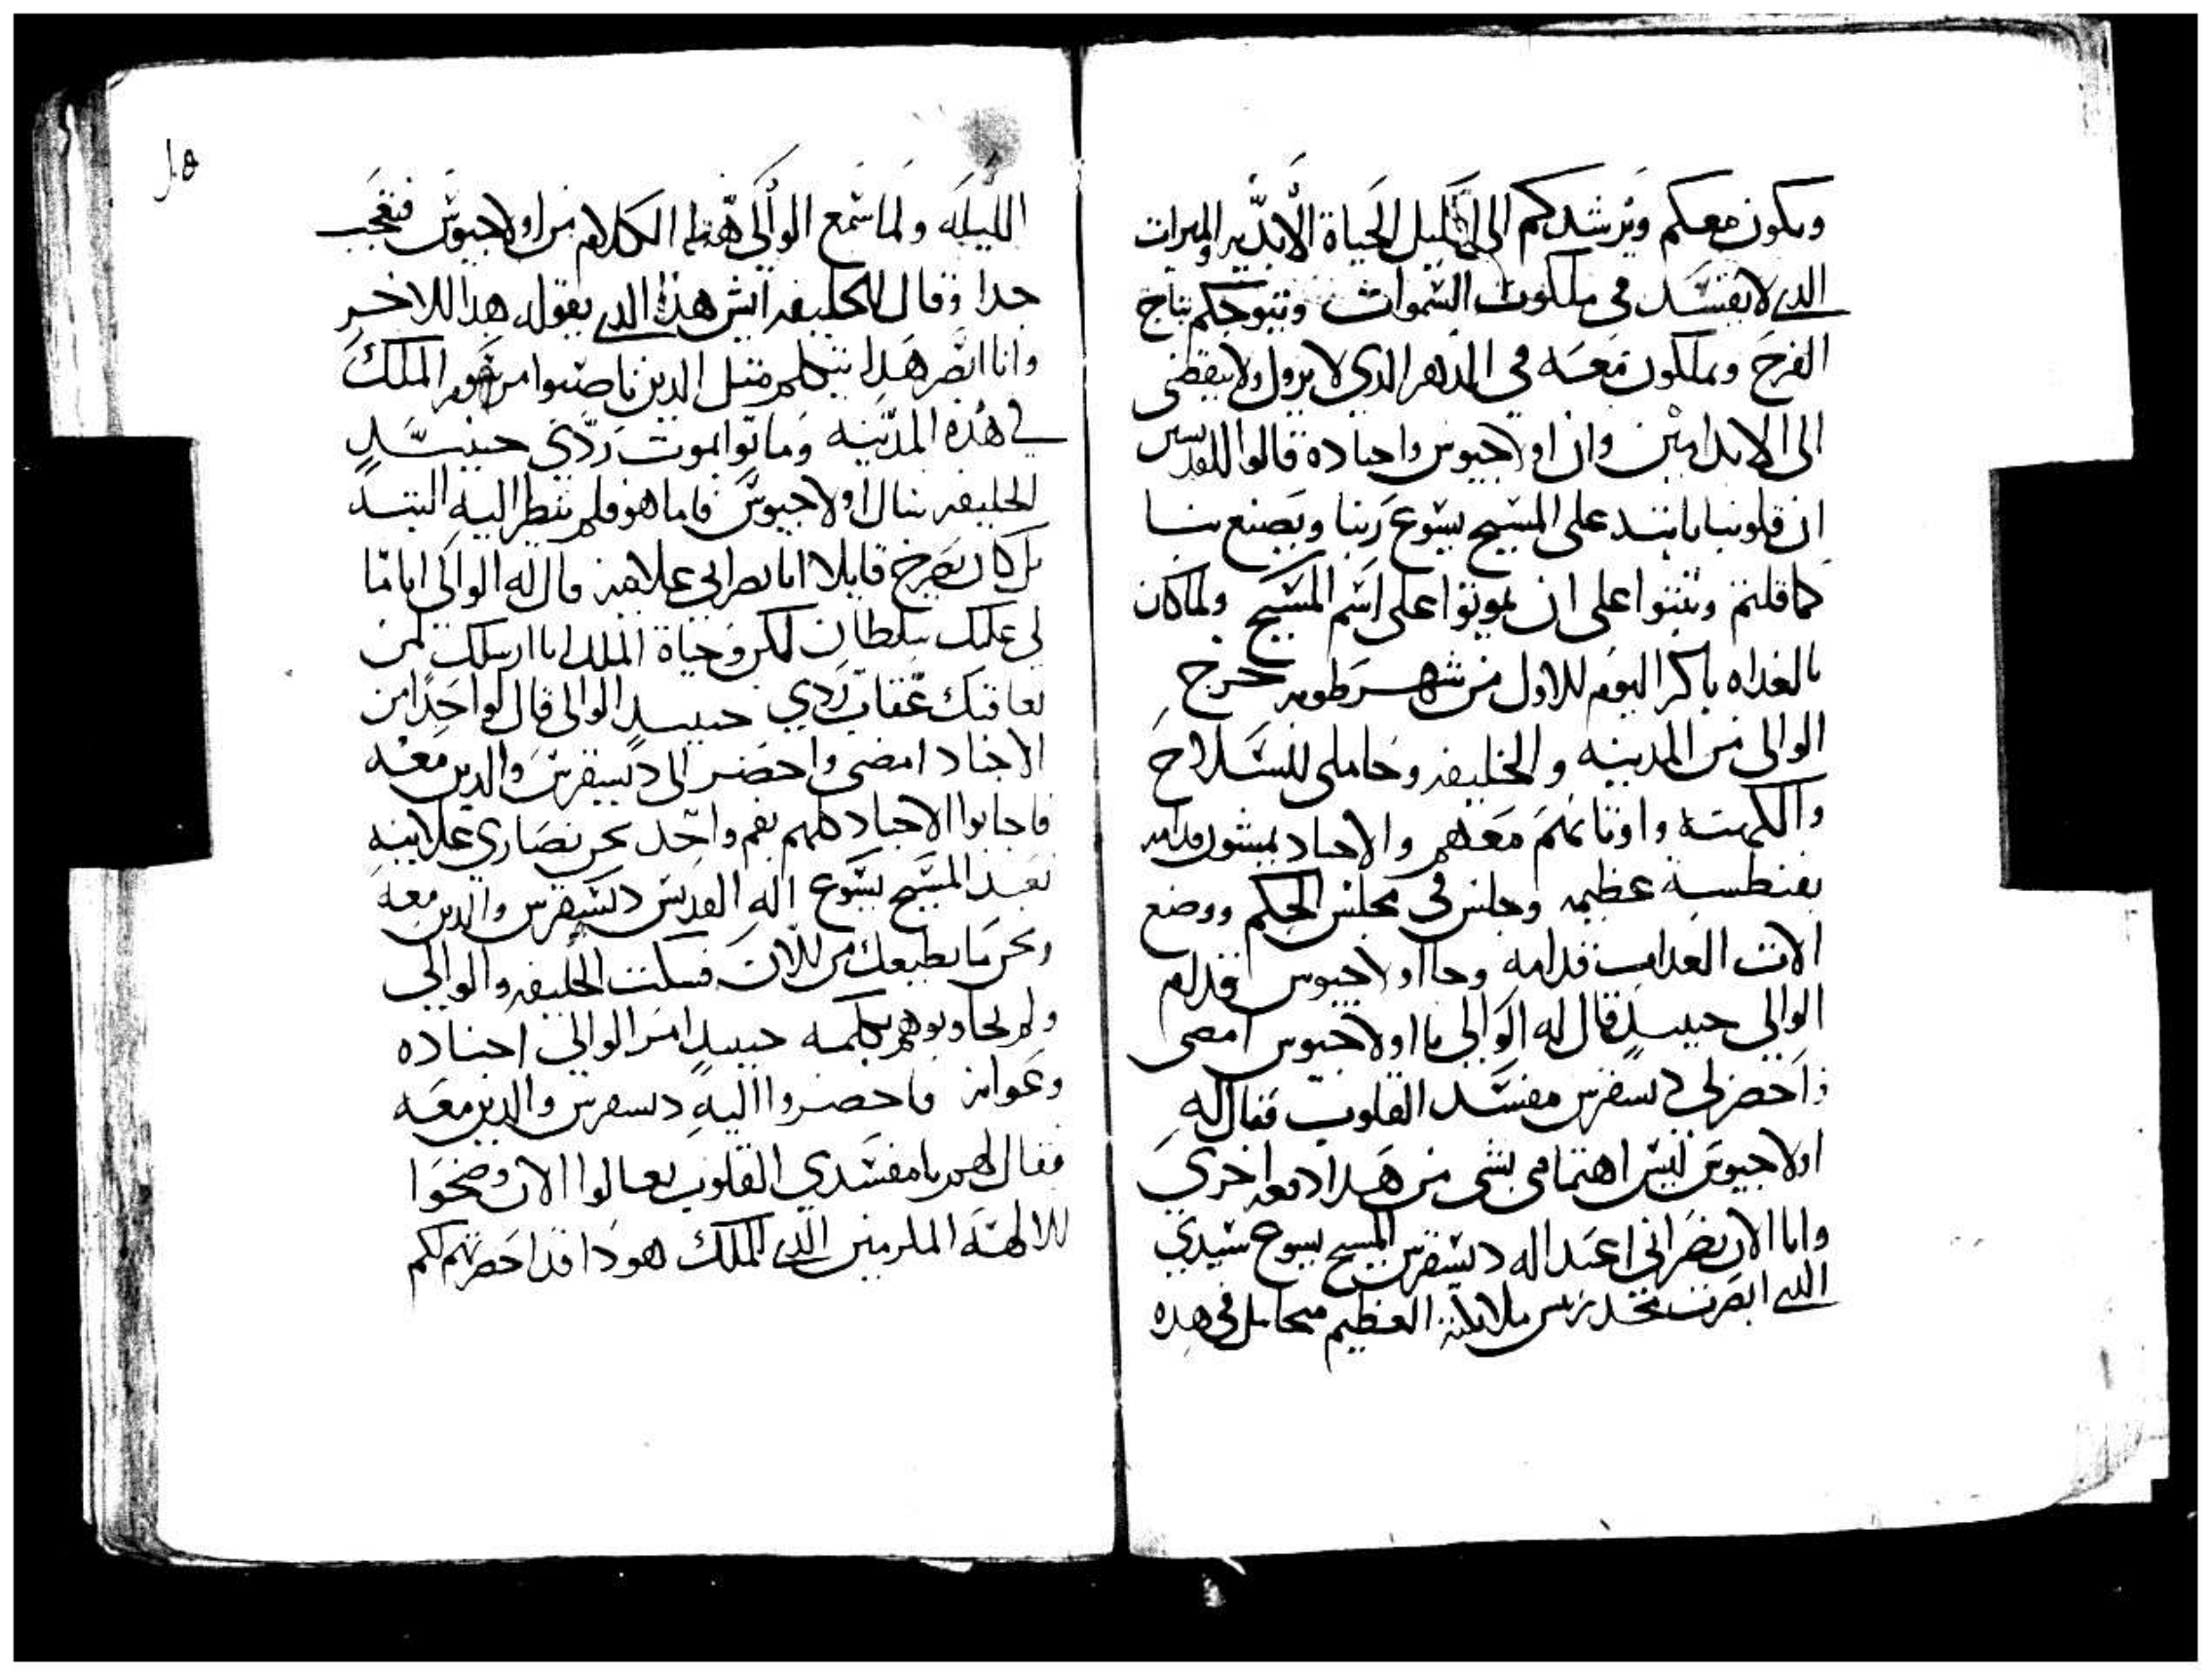 ويكون معكم ويرشدكم الى اكليل الحياة الابديه والميرات
الدى لا يفسد فى ملكوت السموات ويتوجكم بتاج
الفرح وتملكون معه في الدهر الدي لا يزول ولا ينقضى
الى الابد امين وان اولاجيوس واجناده قالوا للقديس
ان قلوبنا تابته على المسيح يسوع ربنا ويصنع بنا
كما قلتم وتبتوا على ان يموتوا على اسم المسيح ولما كان
بالغداه باكر اليوم الاول من شهر طوبه خرج
الوالى من المدينه والخليفه وحاملى السلاح
والكهنه واوتانهم معهم والاجناد يمشون قدامه
بفنطسية عظيمه وجلس في مجلس الحكم ووضع
الات العداب قدامه وجا اولاجيوس قدام
الوالي حينيد قال له الوالى يا اولاجيوس امضى
واحضر لي ديسقرس مفسد القلوب فقال له
اولاجيوس ليس اهتمامى بشى من هدا دفعه اخري
وانا الان نصراني اعبد اله ديسقرس المسيح يسوع سيدي
الدى ابصرت مجد رييس ملايكته العظيم ميخاييل في هده
١٠٥
الليله ولما سمع الوالى هدا الكلام من اولاجيوس فتعجب
جدا وقال للخليفه ايش هدا الدى يقوله هدا الاخر
وانا انظر هدا يتكلم متل الدين ناصبوا امر الملك
في هده المدينه وماتوا بموت ردي حينيد
الخليفه سال اولاجيوس فاما هو فلم ينظر اليه البته
بل كان يصرخ قايلا انا نصراني علانيه قال له الوالى انا ما
لى عليك سلطان لكن وحياة الملك انا ارسلك لمن
يعاقبك عقاب ردي حينيد الوالى قال لواحد من
الاجناد امضى واحضر الى ديسقرس والدين معه
فاجابوا الاجناد كلهم بفم واحد نحن نصاري علانيه
نعبد المسيح يسوع اله القديس ديسقرس والدين معه
ونحن ما نطيعك من الان فسكت الخليفه والوالي
ولم يجاوبوهم بكلمه حينيد امر الوالى اجناده
وعوانه فاحضروا اليه ديسقرس والدين معه
فقال لهم يا مفسدي القلوب تعالوا الان وضحوا
للالهه المكرمين الدى للملك هودا قد احضرتهم لكم